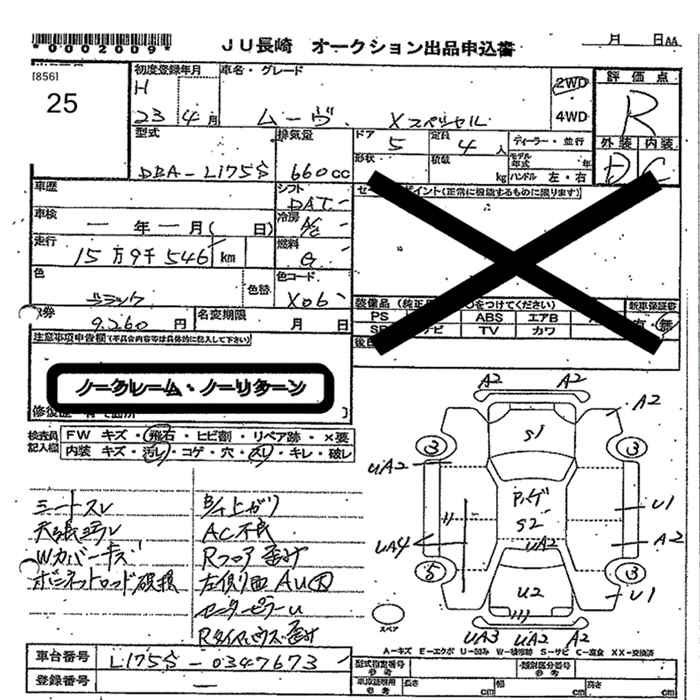 *0002009*
JU長崎 オークション出品申込書
月 日 AA
[856]
25
初度登録年月
車名・グレード
H 23 4月
ムーヴ Xスペシャル
2WD
4WD
評価点
R
外装 内装
D C
型式
DBA-L175S
排気量
660cc
ドア 5
定員 4人
ディーラー・並行
形状
積載 kg
モデル年式 年
ハンドル 左・右
車歴
シフト DAT
車検 ー年ー月( 日)
冷房 AC
走行 15万9千546km
燃料 G
色 ブラック
色替
色コード X06
券 9,260円
名変期限 月 日
セールスポイント(正常に機能するものに限ります)
装備品(純正品 ○をつけてください)
新車保証書
PS ABS エアB
SR ナビ TV カワ
有・無
注意事項申告欄(不具合内容等は具体的に記入して下さい)
ノークレーム・ノーリターン
検査員記入欄
FW キズ・飛石・ヒビ割・リペア跡・×要
内装 キズ・汚レ・コゲ・穴・スレ・キレ・破レ
シートスレ
天張ヨゴレ
Wカバーキズ
ボンネットロッド破損
AC不良
Rフロア
左側面
センターピラーU
A2 A2
A2
S1
3 3
UA2
U1
S2
UA2
UA4
A2
5 3
U2
U1
UA3 UA2 A2
スペア
A-キズ E-エクボ U-凹み W-補修跡 S-サビ C-腐食 XX-交換済
車台番号 L175S-0347673
登録番号 ー
型式指定番号 参考
類別区分番号 参考
車庫証明用 参考
長さ cm 幅 cm 高さ cm